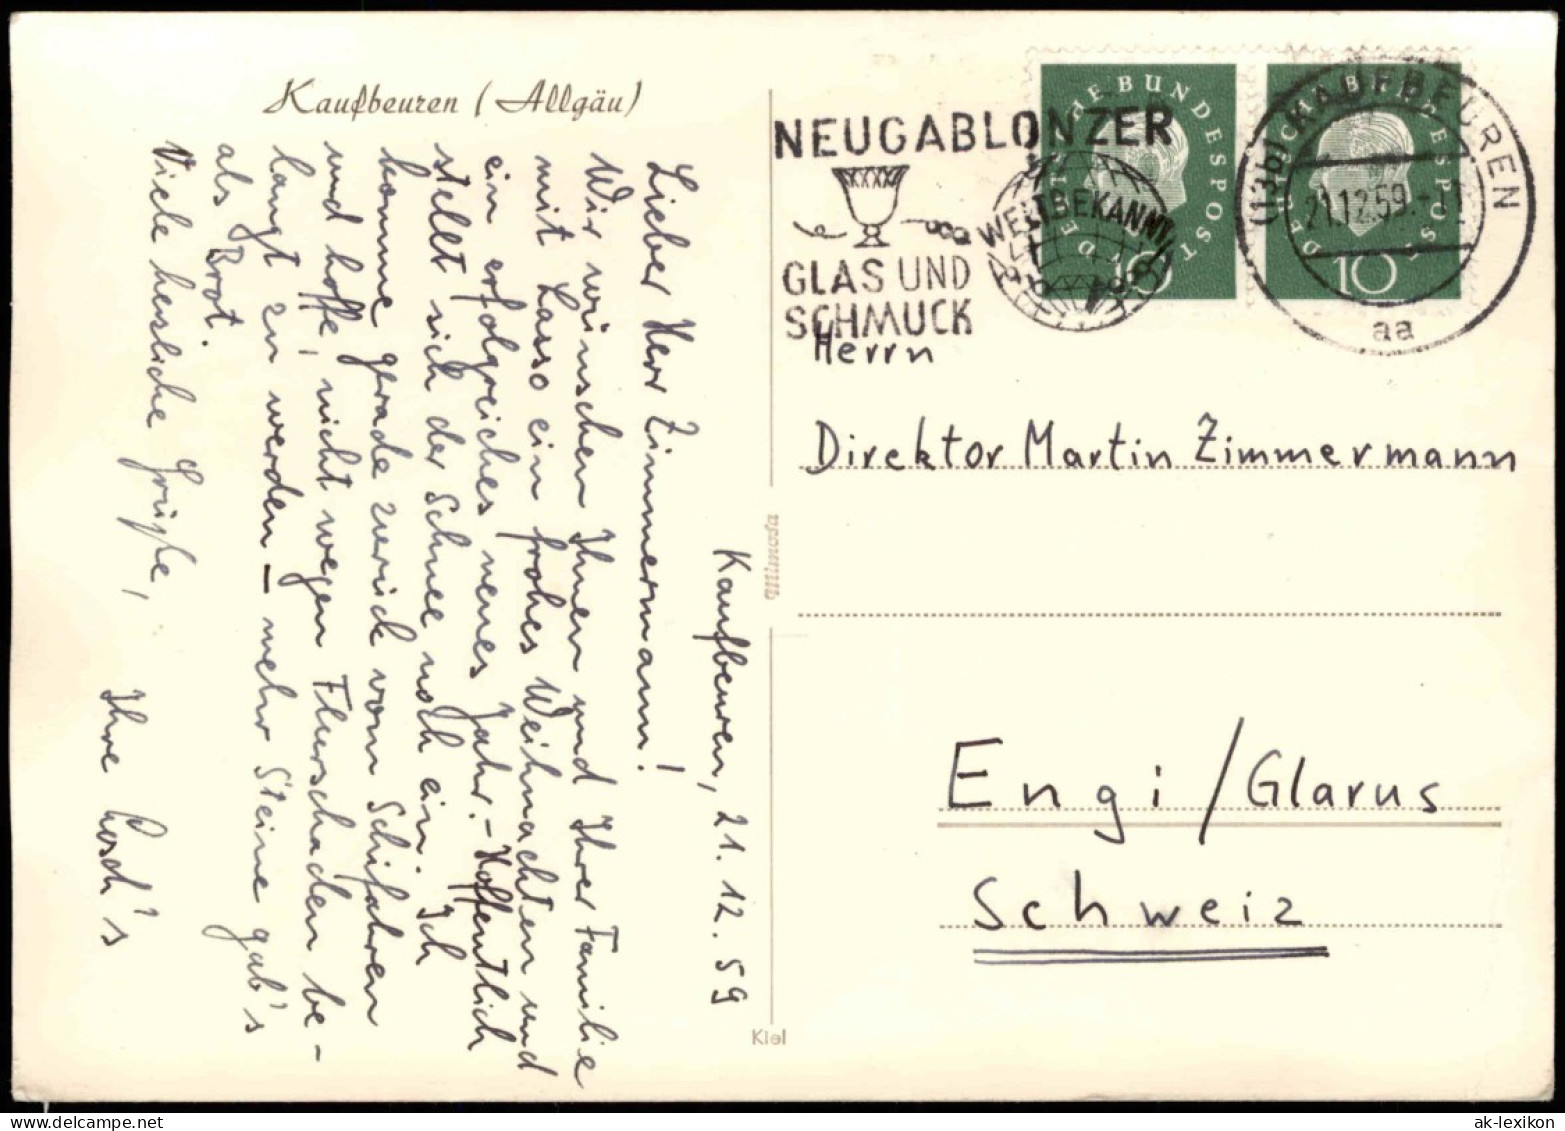 Kaufbeuren (Allgäu)
Kaufbeuren, 21. 12. 59
Lieber Herr Zimmermann!
Wir wünschen Ihnen und Ihrer Familie
mit Lasso ein frohes Weihnachten und
ein erfolgreiches neues Jahr. – Hoffentlich
stellt sich der Schnee noch ein. Ich
komme gerade zurück vom Schifahren
und hoffe, nicht wegen Flurschaden be-
langt zu werden – mehr Steine gab's
als Brot.
Viele herzliche Grüße,
Ihre
Mimosa
Kiel
NEUGABLONZER
WELTBEKANNT
GLAS UND
SCHMUCK
DEUTSCHE BUNDESPOST
10
DEUTSCHE BUNDESPOST
10
(13b) KAUFBEUREN
21.12.59.
aa
Herrn
Direktor Martin Zimmermann
Engi / Glarus
Schweiz
ak-lexikon